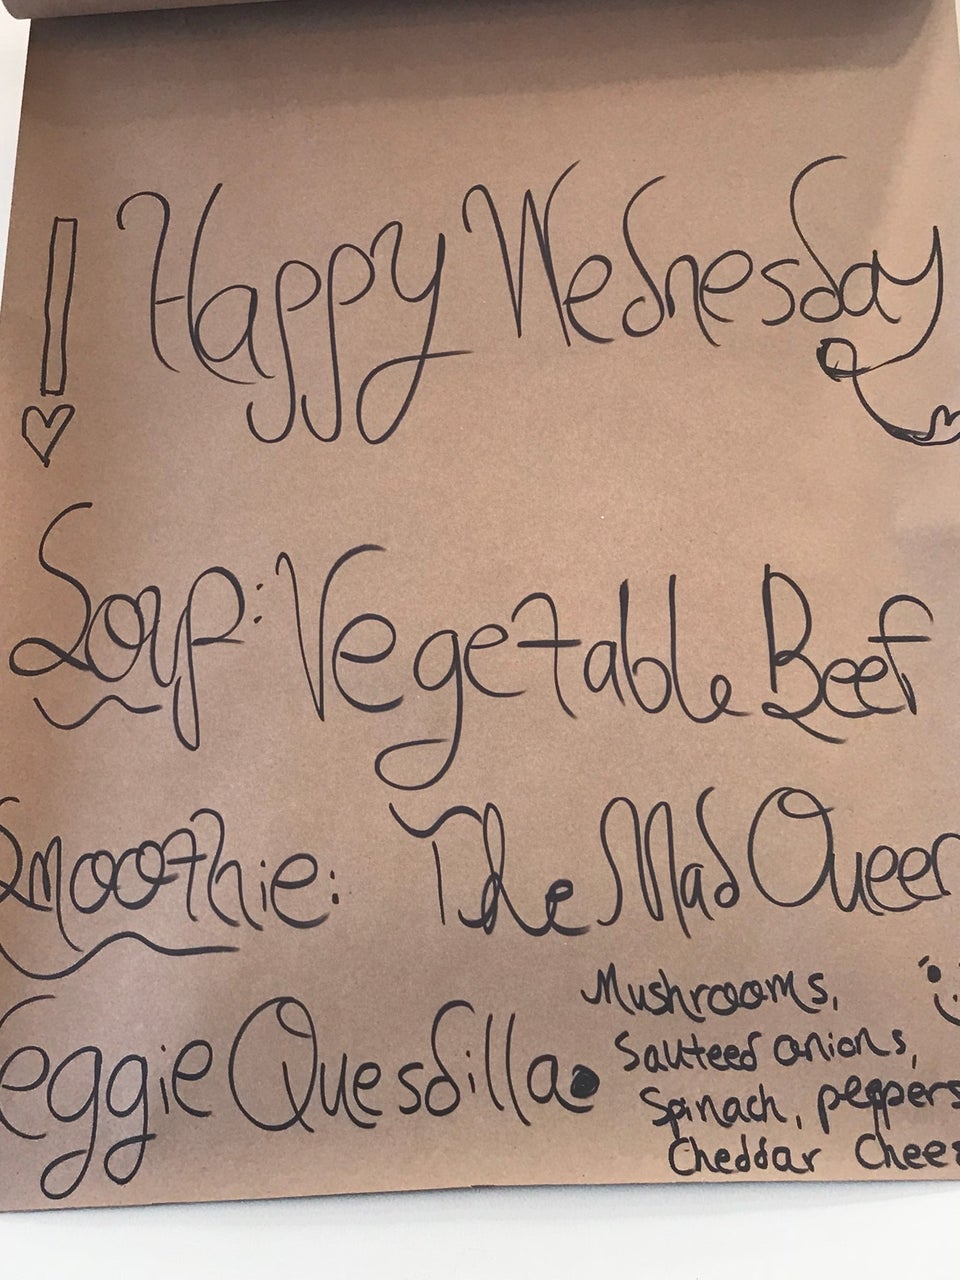 ! Happy Wednesday
Soup: Vegetable Beef
Smoothie: The Mad Queen
eggie Quesdilla
Mushrooms,
Sauteed onions,
Spinach, peppers
Cheddar Chees